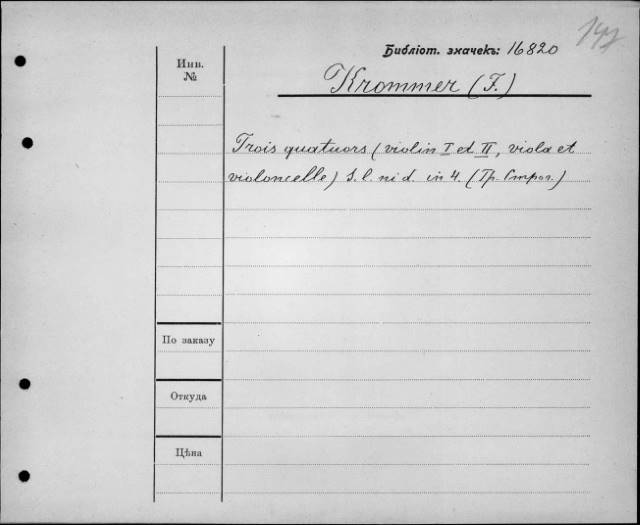 Библіот. значекъ: 16820
Инв.
№
Krommer (F.)
Trois quatuors (violin I et II, viola et
violoncelle) S. l. ni d. in 4. (Гр. Строг.)
По заказу
Откуда
Цѣна